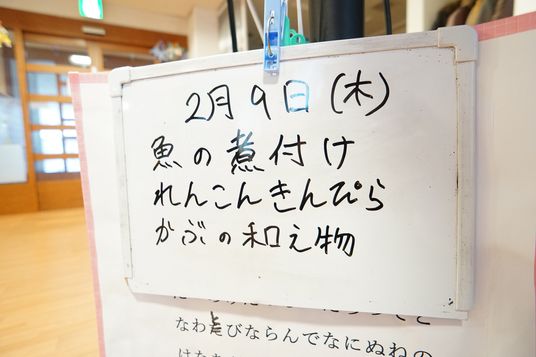 2月9日(木)
魚の煮付け
れんこんきんぴら
かぶの和え物
なわとびならんでなにぬねの